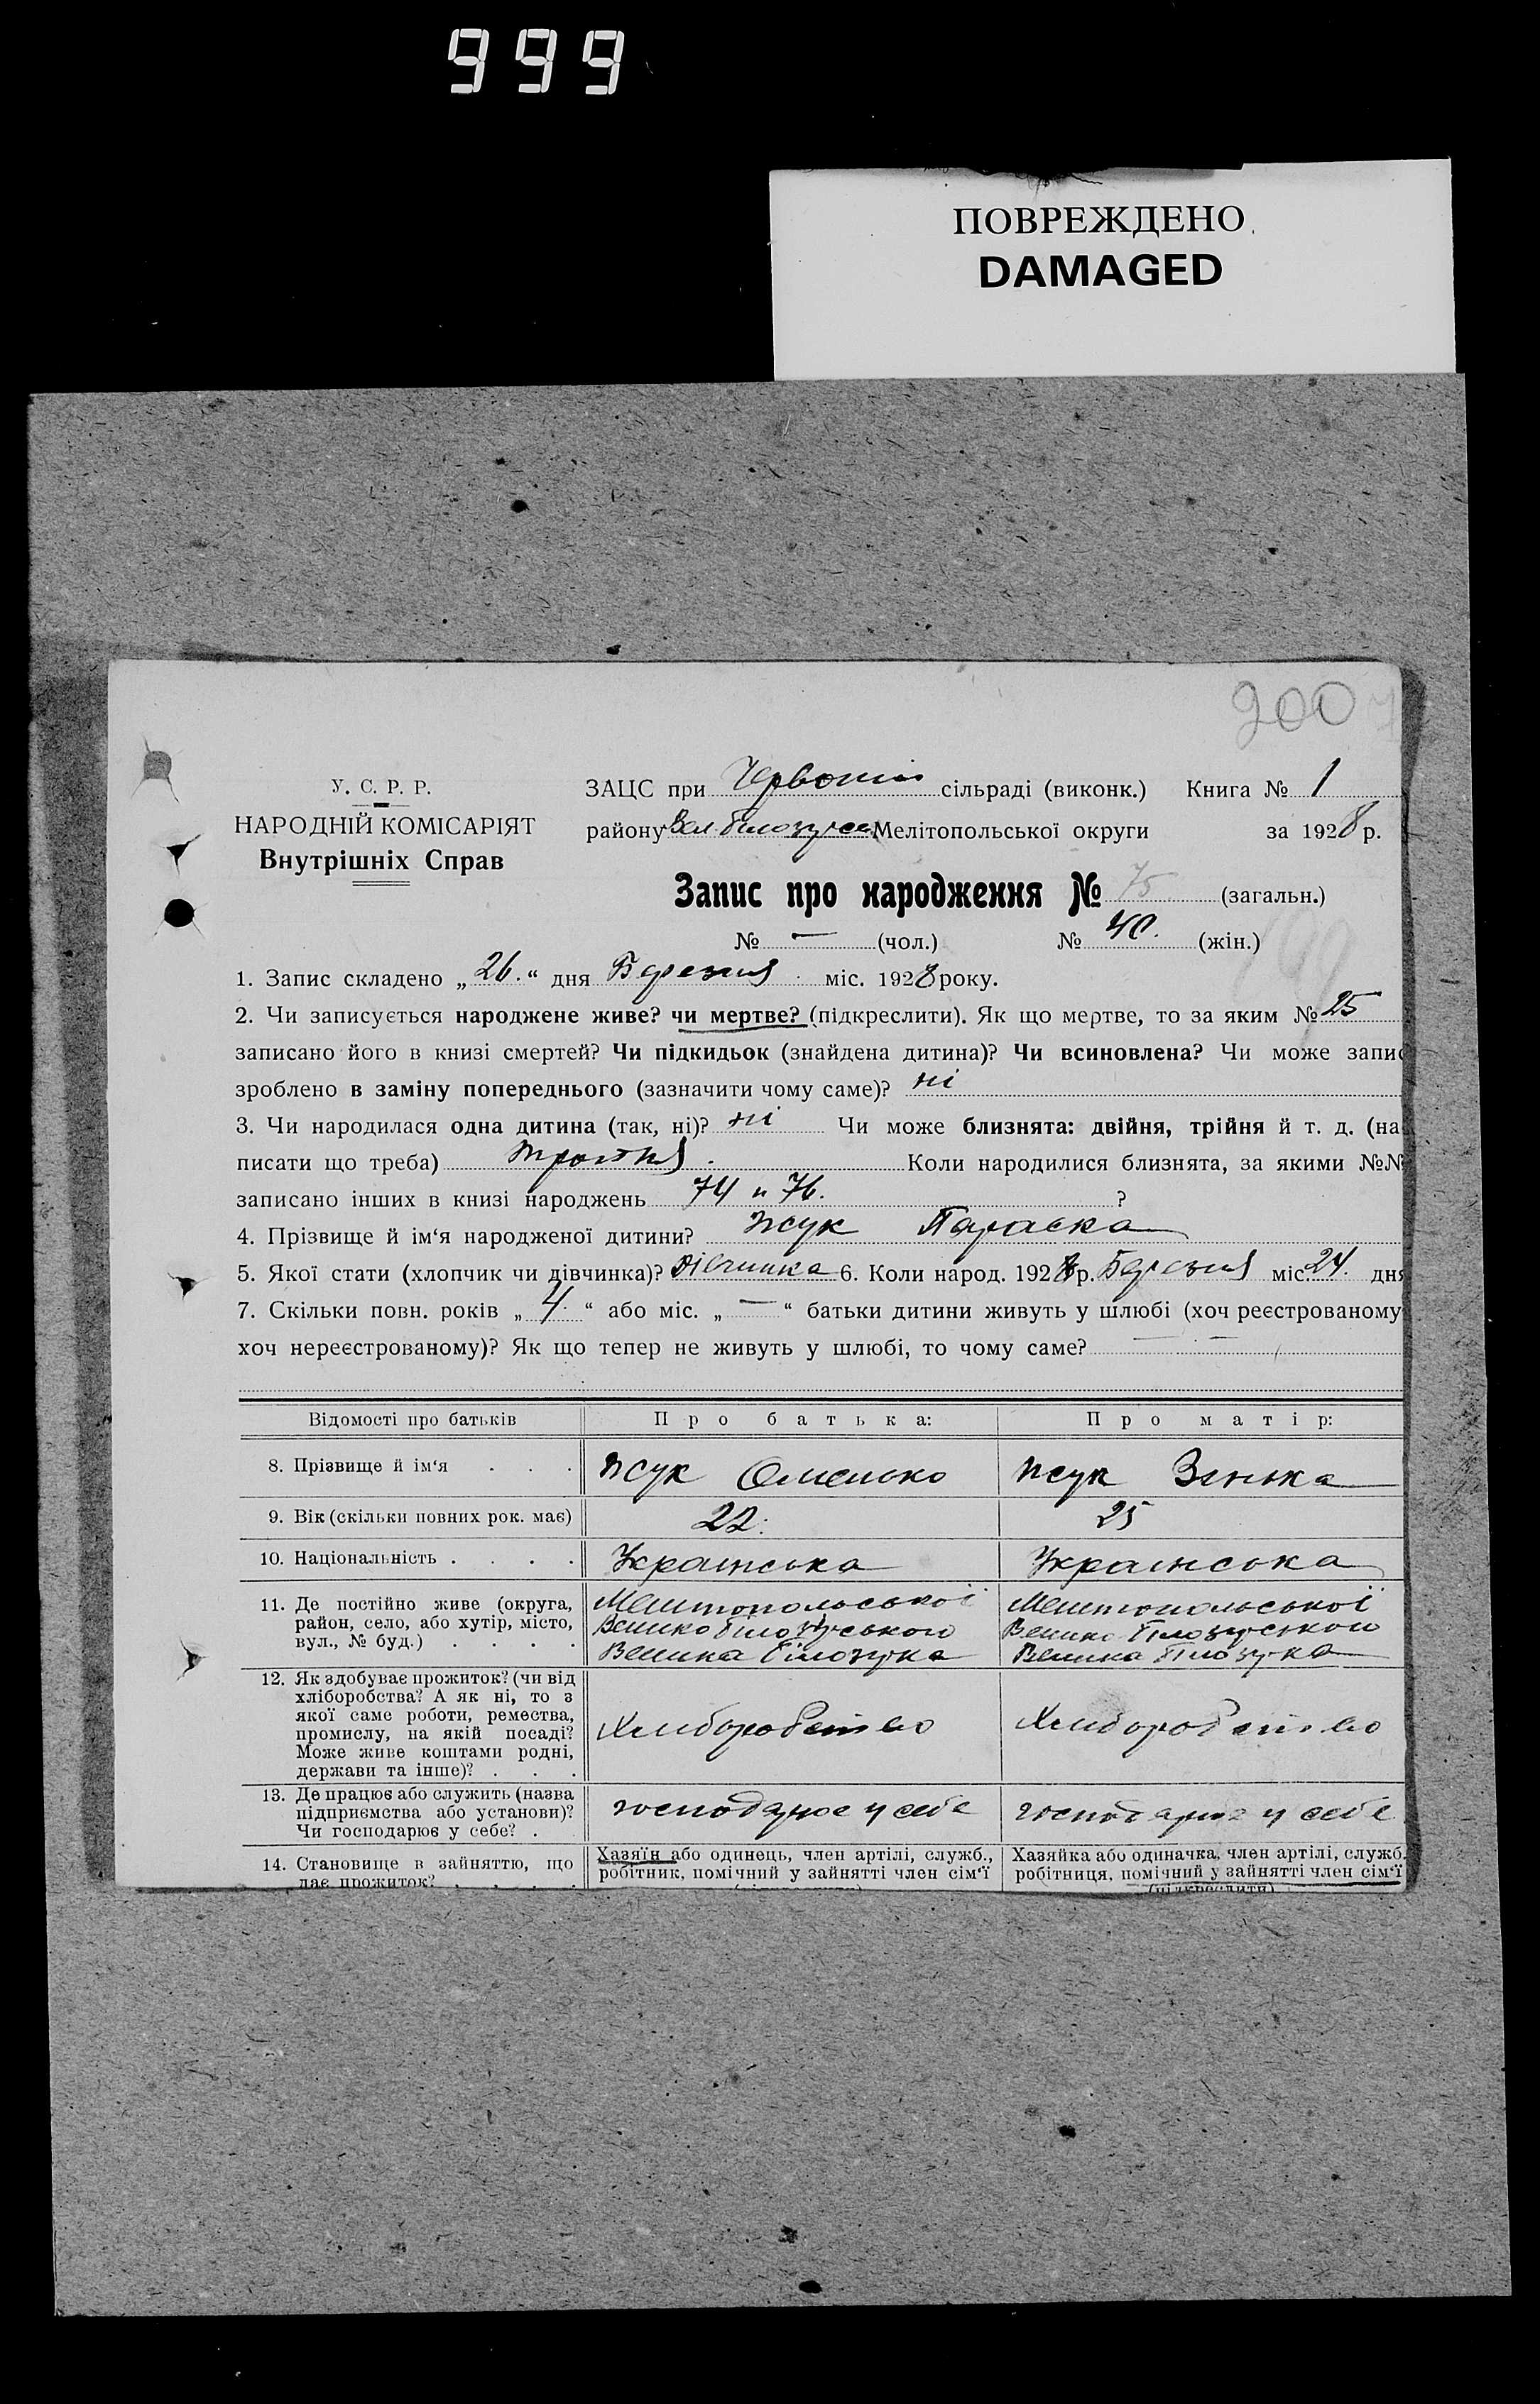 999
ПОВРЕЖДЕНО
DAMAGED
900
У. С. Р. Р.
НАРОДНІЙ КОМІСАРІЯТ
Внутрішніх Справ
ЗАЦС при Червоній сільраді (виконк.) Книга № 1
району Вел. Білозірськ Мелітопольської округи за 1928 р.
Запис про народження № 75 (загальн.)
№ — (чол.) № 40. (жін.)
1. Запис складено „ 26. “ дня Березня міс. 1928 року.
2. Чи записується народжене живе? чи мертве? (підкреслити). Як що мертве, то за яким № 25
записано його в книзі смертей? Чи підкидьок (знайдена дитина)? Чи всиновлена? Чи може запис
зроблено в заміну попереднього (зазначити чому саме)? ні
3. Чи народилася одна дитина (так, ні)? ні Чи може близнята: двійня, трійня й т. д. (на
писати що треба) Тройня. Коли народилися близнята, за якими №№
записано інших в книзі народжень 74 и 76. ?
4. Прізвище й ім‘я народженої дитини? Жук Параска
5. Якої стати (хлопчик чи дівчинка)? дівчинка 6. Коли народ. 1928 р. Березня міс. 24. дня
7. Скільки повн. років „ 4. “ або міс. „ — “ батьки дитини живуть у шлюбі (хоч реєстрованому
хоч нереєстрованому)? Як що тепер не живуть у шлюбі, то чому саме? — —
Відомості про батьків Про батька: Про матір:
8. Прізвище й ім‘я . . . Жук Омелько Жук Зінька
9. Вік (скільки повних рок. має) 22. 25
10. Національність . . . . Українська Українська
11. Де постійно живе (округа, район, село, або хутір, місто, вул., № буд.) . . . .
Мелітопольської Мелітопольської
Велико Білозурського Велико Білозурського
Велика Білозурка Велика Білозурка
12. Як здобуває прожиток? (чи від
хліборобства? А як ні, то з
якої саме роботи, ремества,
промислу, на якій посаді?
Може живе коштами родні,
держави та інше)? . . .
Хлиборобство Хлиборобство
13. Де працює або служить (назва
підприємства або установи)?
Чи господарює у себе? .
господарює у себе господарює у себе
14. Становище в зайняттю, що
дає прожиток? . . . .
Хазяїн або одинець, член артілі, служб.,
робітник, помічний у зайнятті член сім‘ї
(підкреслити)
Хазяйка або одиначка, член артілі, служб.
робітниця, помічний у зайнятті член сім‘ї
(підкреслити)